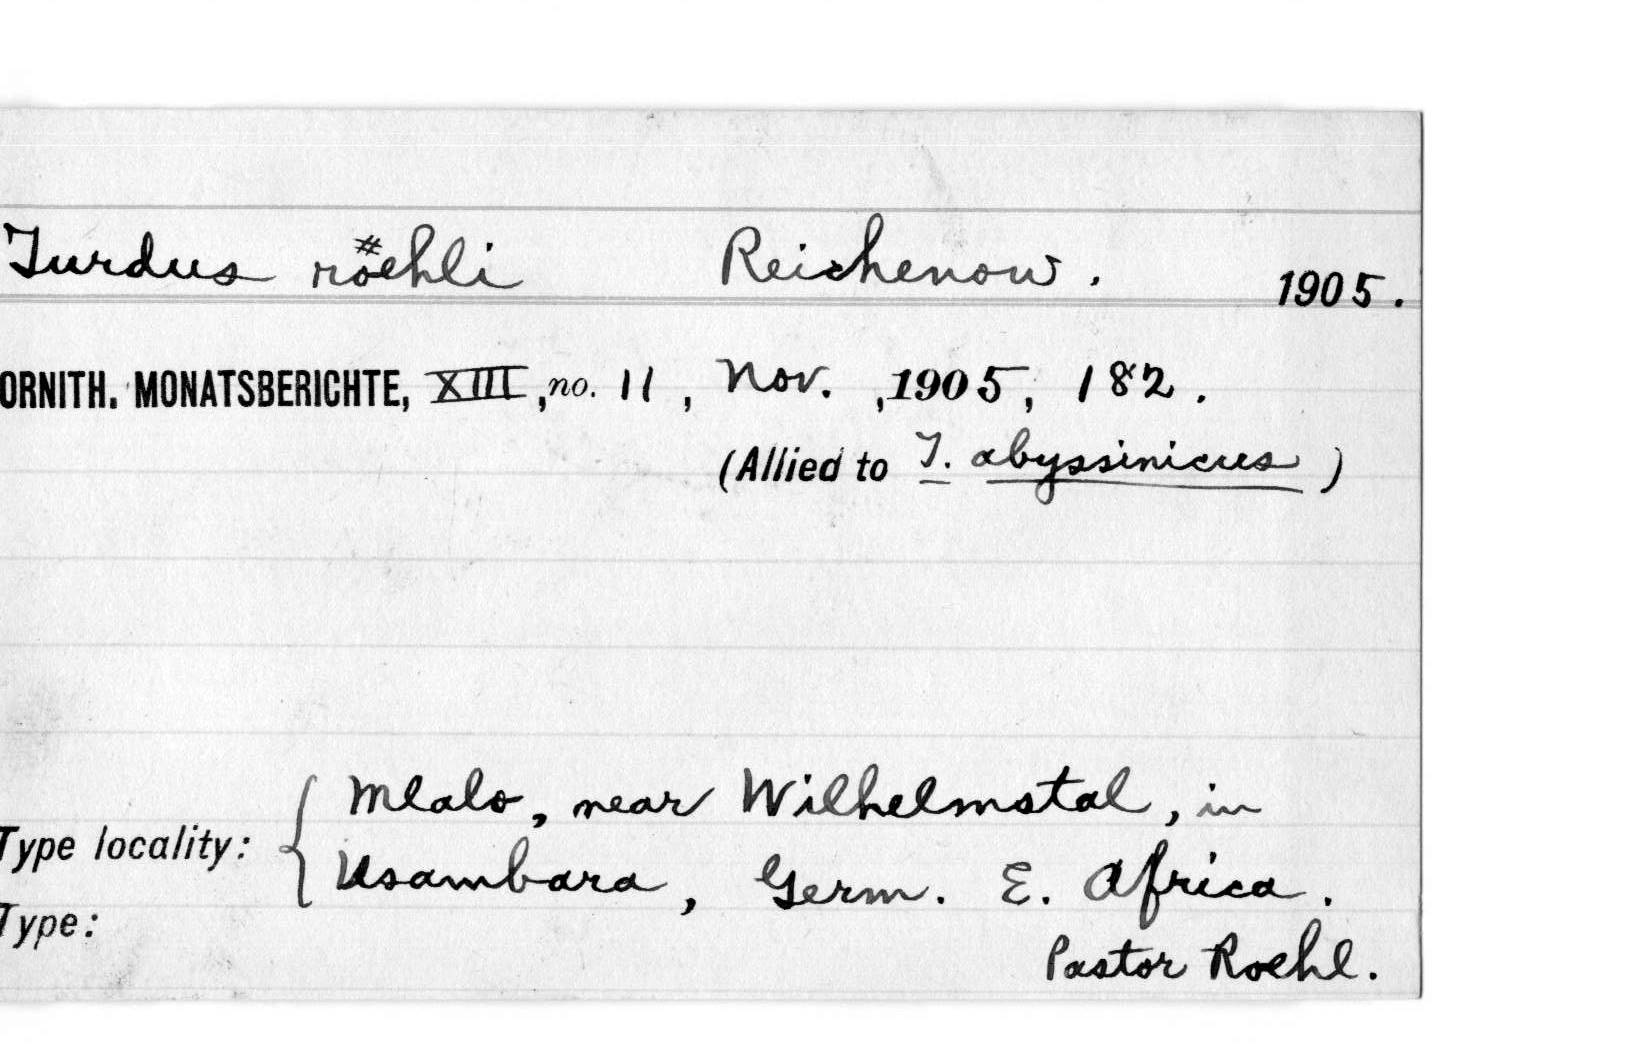 Turdus röehli Reichenow. 1905.
ORNITH. MONATSBERICHTE, XIII, no. 11, Nov., 1905, 182.
(Allied to T. abyssinicus)
Mlalo, near Wilhelmstal, in
Type locality:
Usambara, Germ. E. Africa.
Type:
Pastor Roehl.